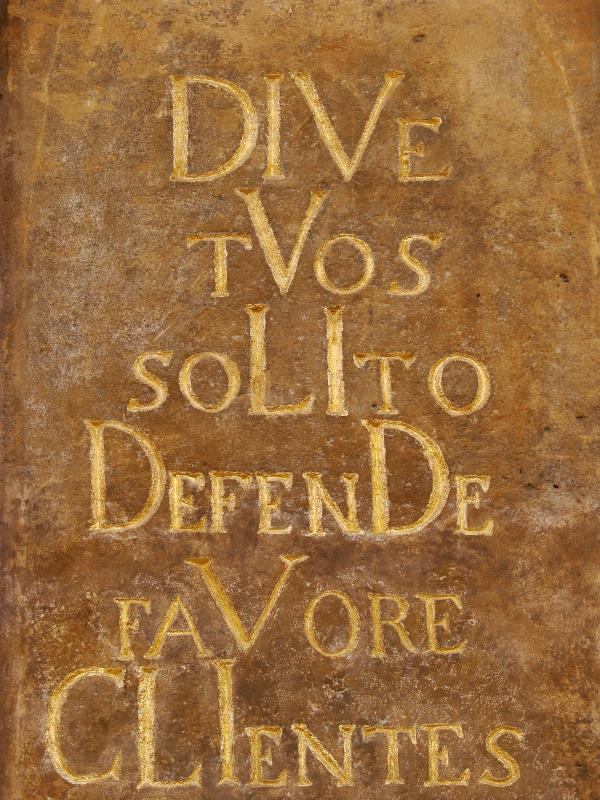 DIVE
TVOS
SOLITO
DEFENDE
FAVORE
CLIENTES